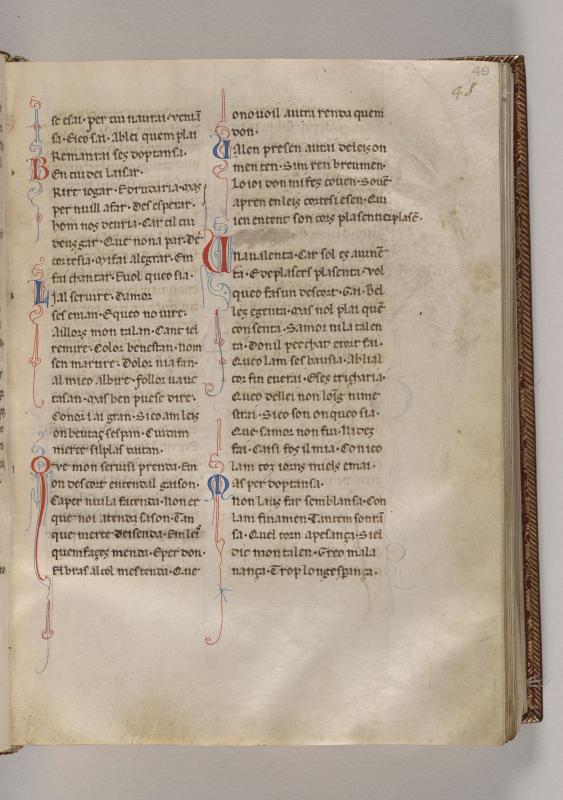 49
48
se esai · per cui naurai · ueniā
sa · Eico sai · Ablei quem plai
Remanrai ses doptansa ·
Ben cuidei laisar ·
Rirt iogar · E druaria · Mas
per nuill afar · Des esperar ·
hom nos deuria · Car cil cui
deuz gar · Que nona par · De
cortesia · Mi fai alegrar · Em
fai chantar · Euol queo sia ·
Lial seruire · Damor
ses eman · E queo no uire ·
Aillors mon talan · Cant iel
remire · Color benestan · nom
sen marture · Dolor nia fan ·
al mieo albire · follor uauc
casan · Mas ben puesc dire ·
Conor iai gran · Si co am leis
on beutaç sespan · Cuidam
merce silplas daitan ·
Ore mon seruisi prenda · En
on descort entendal guison ·
Caper nuila facenda · Non er
que noi atenda sason · Tan
que merce deisenda · En leis
quem faces menda · E per don ·
El bras al col mestenda · Que
ono uoil autra renda quem
don ·
Valen presen autai de leis on
men ten · Sim ren breumen ·
Lo ioi don mi fes couen · Souē
apren en leis cortes i esen · Qui
ien entent son cors plasentieplasē ·
Una ualenta · Car sol es auinē
ta · E de plasers plasenta · Vol
queo fas un descort · Gai · Bel
les egenta · Mas nol plai quē
con senta · Samor nila talen
ta · Donil pecchat etort fai ·
Queo lam ses bausia · Ablial
cor fin euerai · Eses tricharia ·
Que dellei non loig nime
strai · Si co son on queo sia ·
Que samor non fui · Ni dez
fai · Caisi fos il mia · Con ieo
lam toz iorns miels emai ·
Mas per doptansa ·
non laus far semblansa · Con
lam finamen · Tantem sonrā
sa · Quel torn apesança · Si el
dic mon talen · Greo mala
nança · Trop longesperança ·